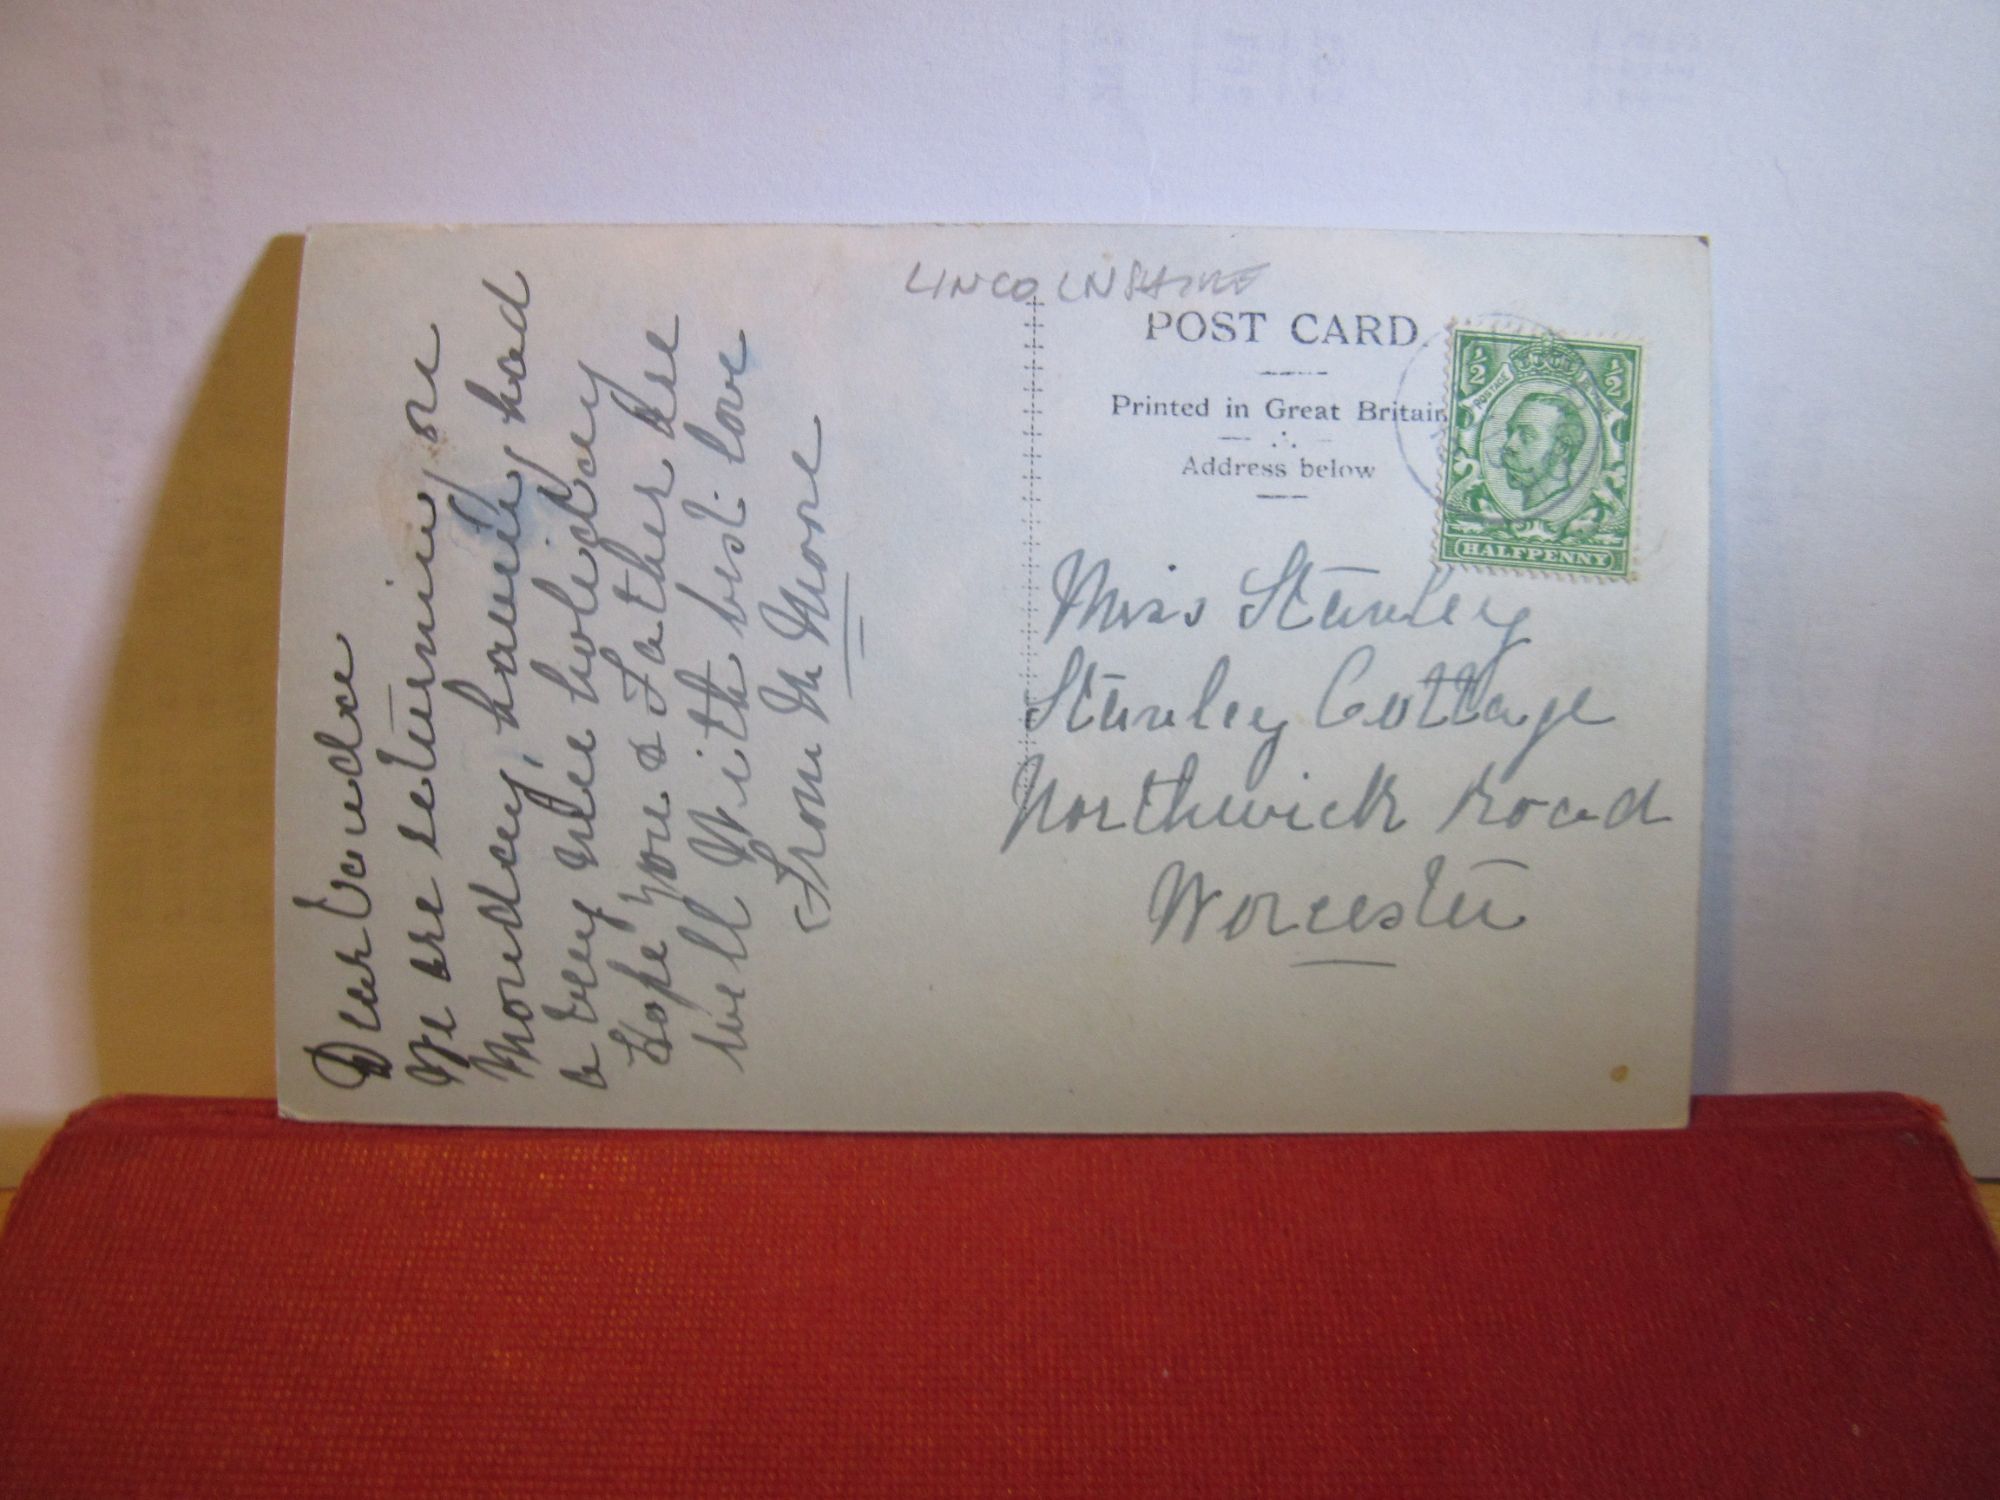 LINCOLNSHIRE
POST CARD.
Printed in Great Britain
Address below
½ ½
POSTAGE REVENUE
HALFPENNY
Dear
We are returning on
Monday, having had
a very nice holiday
Hope you & Father are
well With best love
From M Moore
Miss Stanley
Stanley Cottage
Northwick Road
Worcester